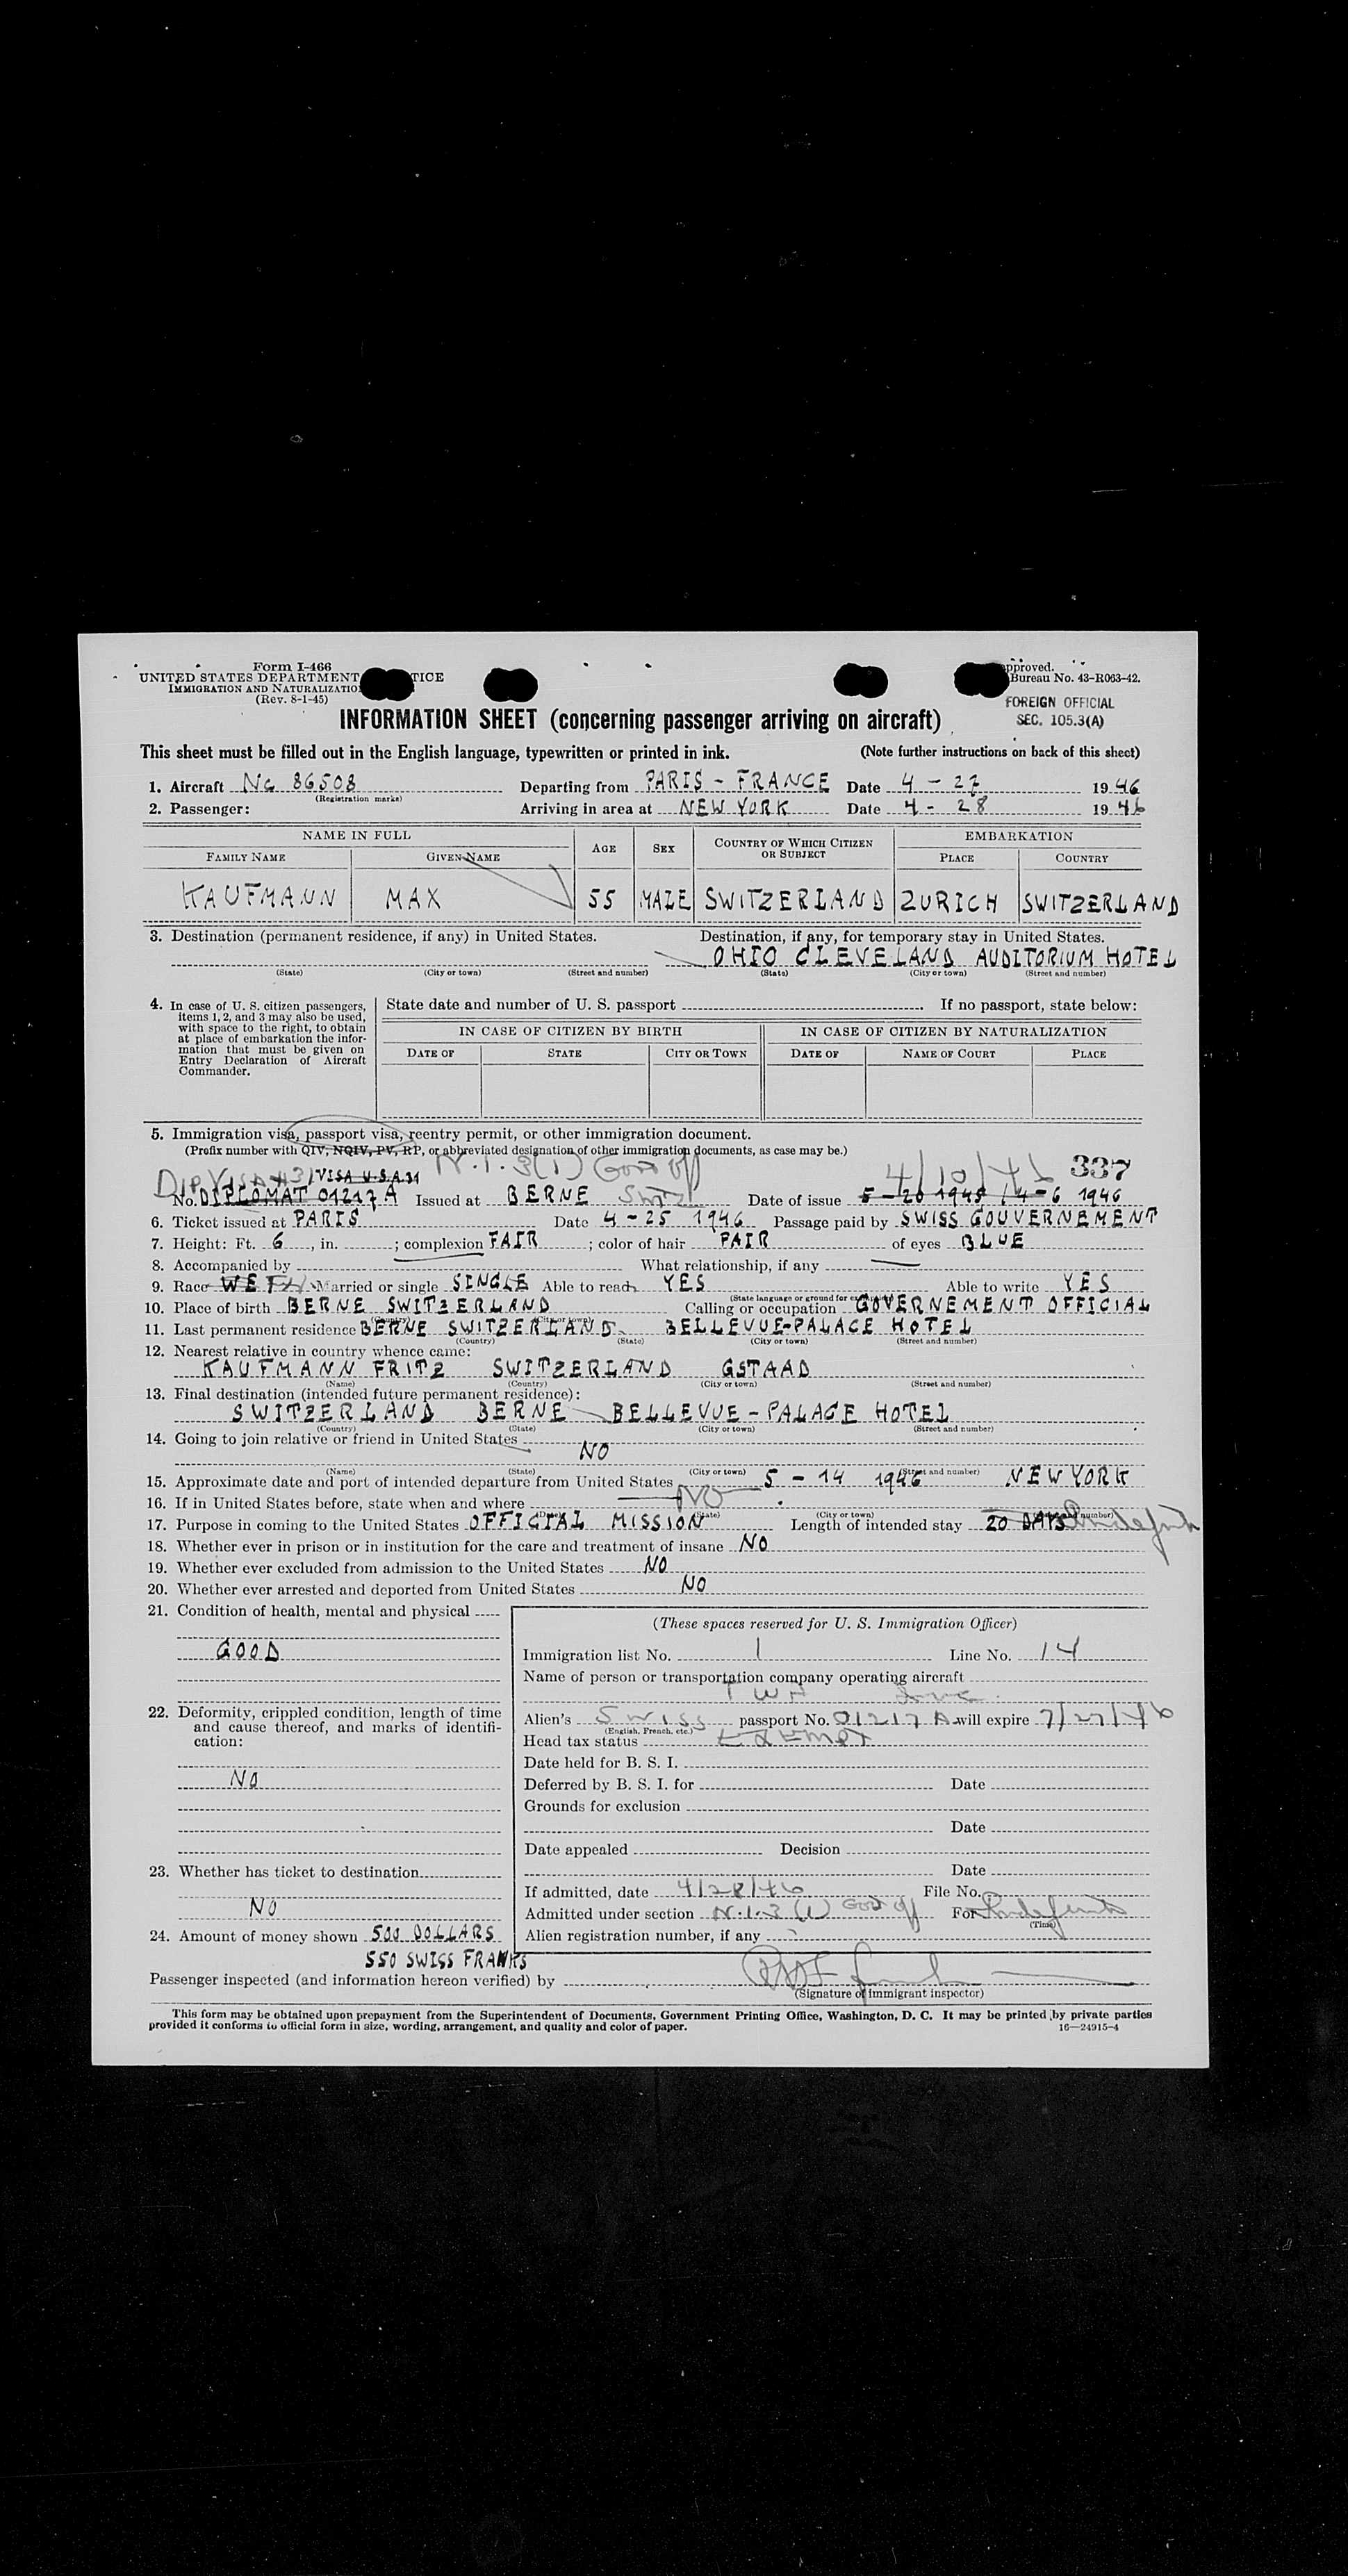 Form I-466
UNITED STATES DEPARTMENT TICE
IMMIGRATION AND NATURALIZATIO
(Rev. 8-1-45)
pproved.
Bureau No. 43-R063-42.
FOREIGN OFFICIAL
SEC. 105.3(A)
INFORMATION SHEET (concerning passenger arriving on aircraft)
This sheet must be filled out in the English language, typewritten or printed in ink. (Note further instructions on back of this sheet)
1. Aircraft NC 86508 Departing from PARIS - FRANCE Date 4 - 27 1946
(Registration marks)
2. Passenger: Arriving in area at NEW YORK Date 4 - 28 1946
NAME IN FULL AGE SEX COUNTRY OF WHICH CITIZEN OR SUBJECT EMBARKATION
FAMILY NAME GIVEN NAME PLACE COUNTRY
KAUFMANN MAX 55 MALE SWITZERLAND ZURICH SWITZERLAND
3. Destination (permanent residence, if any) in United States. Destination, if any, for temporary stay in United States.
OHIO CLEVELAND AUDITORIUM HOTEL
(State) (City or town) (Street and number) (State) (City or town) (Street and number)
4. In case of U. S. citizen passengers, items 1, 2, and 3 may also be used, with space to the right, to obtain at place of embarkation the information that must be given on Entry Declaration of Aircraft Commander.
State date and number of U. S. passport If no passport, state below:
IN CASE OF CITIZEN BY BIRTH IN CASE OF CITIZEN BY NATURALIZATION
DATE OF STATE CITY OR TOWN DATE OF NAME OF COURT PLACE
5. Immigration visa, passport visa, reentry permit, or other immigration document.
(Prefix number with QIV, NQIV, PV, RP, or abbreviated designation of other immigration documents, as case may be.)
Dip Visa #31 VISA U.S.A. 31 N.I. 3(1) Gov off 4/10/46 337
No. DIPLOMAT 01217 A Issued at BERNE Switz Date of issue 5-20 1945 / 4-6 1946
6. Ticket issued at PARIS Date 4-25 1946 Passage paid by SWISS GOUVERNEMENT
7. Height: Ft. 6, in. ; complexion FAIR ; color of hair FAIR of eyes BLUE
8. Accompanied by What relationship, if any
9. Race Married or single SINGLE Able to read YES Able to write YES
10. Place of birth BERNE SWITZERLAND Calling or occupation GOVERNEMENT OFFICIAL
11. Last permanent residence BERNE SWITZERLAND BELLEVUE-PALACE HOTEL
(Country) (State) (City or town) (Street and number)
12. Nearest relative in country whence came:
KAUFMANN FRITZ SWITZERLAND GSTAAD
(Name) (Country) (City or town) (Street and number)
13. Final destination (intended future permanent residence):
SWITZERLAND BERNE BELLEVUE-PALACE HOTEL
(Country) (State) (City or town) (Street and number)
14. Going to join relative or friend in United States
NO
(Name) (State) (City or town) (Street and number)
15. Approximate date and port of intended departure from United States 5 - 14 1946 NEW YORK
16. If in United States before, state when and where NO
(State) (City or town)
17. Purpose in coming to the United States OFFICIAL MISSION Length of intended stay 20 DAYS Indefinite
18. Whether ever in prison or in institution for the care and treatment of insane NO
19. Whether ever excluded from admission to the United States NO
20. Whether ever arrested and deported from United States NO
21. Condition of health, mental and physical
GOOD
22. Deformity, crippled condition, length of time and cause thereof, and marks of identification:
NO
23. Whether has ticket to destination
NO
24. Amount of money shown 500 DOLLARS
550 SWISS FRANKS
(These spaces reserved for U. S. Immigration Officer)
Immigration list No. 1 Line No. 14
Name of person or transportation company operating aircraft
TWA Inc.
Alien's Swiss passport No. 01217 A will expire 7/27/46
(English, French, etc.)
Head tax status Exempt
Date held for B. S. I.
Deferred by B. S. I. for Date
Grounds for exclusion
Date
Date appealed Decision
Date
If admitted, date 4/28/46 File No.
Admitted under section N.I. 3 (1) Gov off For Indefinite
(Time)
Alien registration number, if any
Passenger inspected (and information hereon verified) by
(Signature of immigrant inspector)
This form may be obtained upon prepayment from the Superintendent of Documents, Government Printing Office, Washington, D. C. It may be printed by private parties
provided it conforms to official form in size, wording, arrangement, and quality and color of paper. 16—24915-4